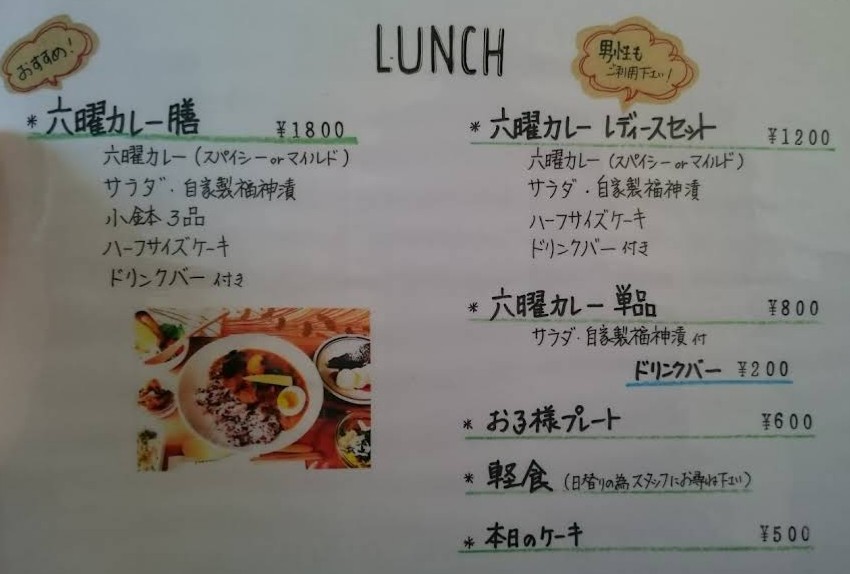 LUNCH
おすすめ!
* 六曜カレー膳 ¥1800
六曜カレー (スパイシー or マイルド)
サラダ・自家製福神漬
小鉢3品
ハーフサイズケーキ
ドリンクバー 付き
男性も
ご利用下さい!
* 六曜カレー レディースセット ¥1200
六曜カレー (スパイシー or マイルド)
サラダ・自家製福神漬
ハーフサイズケーキ
ドリンクバー 付き
* 六曜カレー 単品 ¥800
サラダ・自家製福神漬 付
ドリンクバー ¥200
* お子様プレート ¥600
* 軽食 (日替りの為スタッフにお尋ね下さい)
* 本日のケーキ ¥500